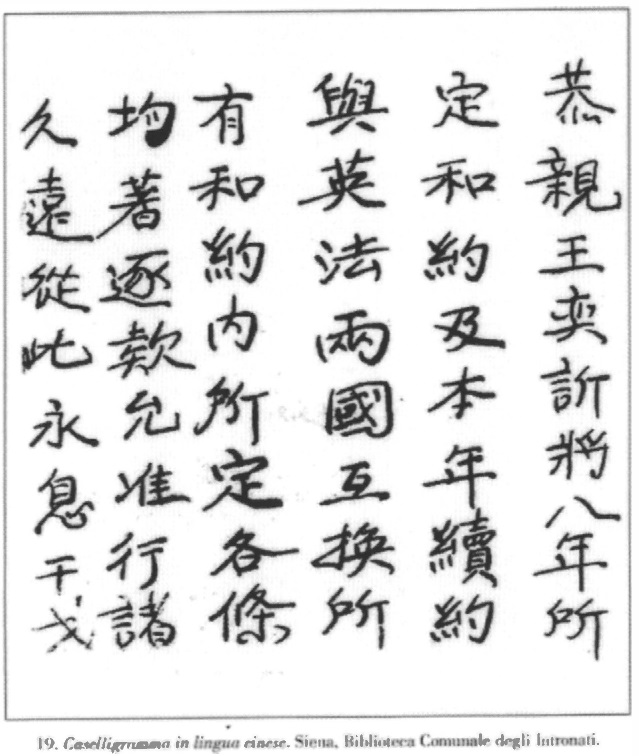 恭親王奕訢將八年所
定和約及本年續約
與英法兩國互換所
有和約內所定各條
均著逐欵允准行諸
久遠從此永息干戈
19. Caselligramma in lingua cinese. Siena, Biblioteca Comunale degli Intronati.